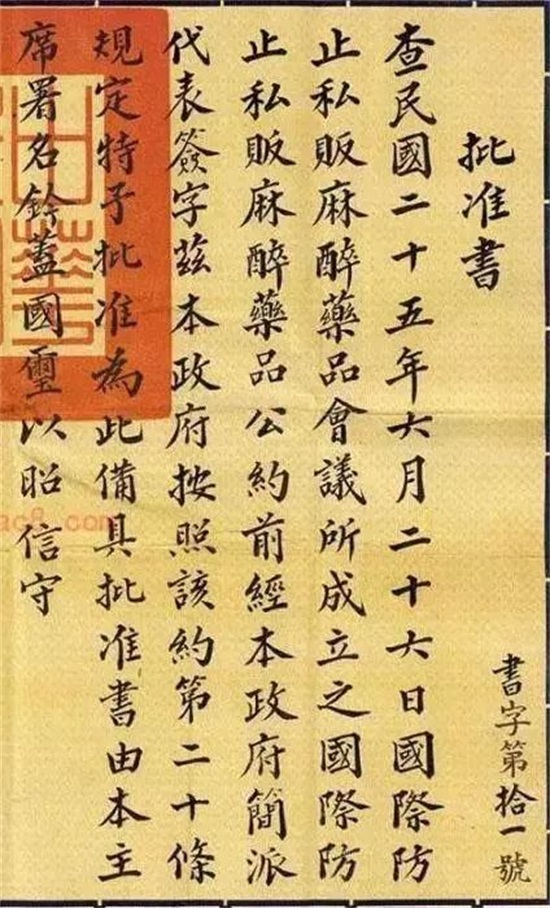 批准書
書字第拾一號
查民國二十五年六月二十六日國際防
止私販麻醉藥品會議所成立之國際防
止私販麻醉藥品公約前經本政府簡派
代表簽字茲本政府按照該約第二十條
規定特予批准為此備具批准書由本主
席署名鈐蓋國璽以昭信守
ac8.com